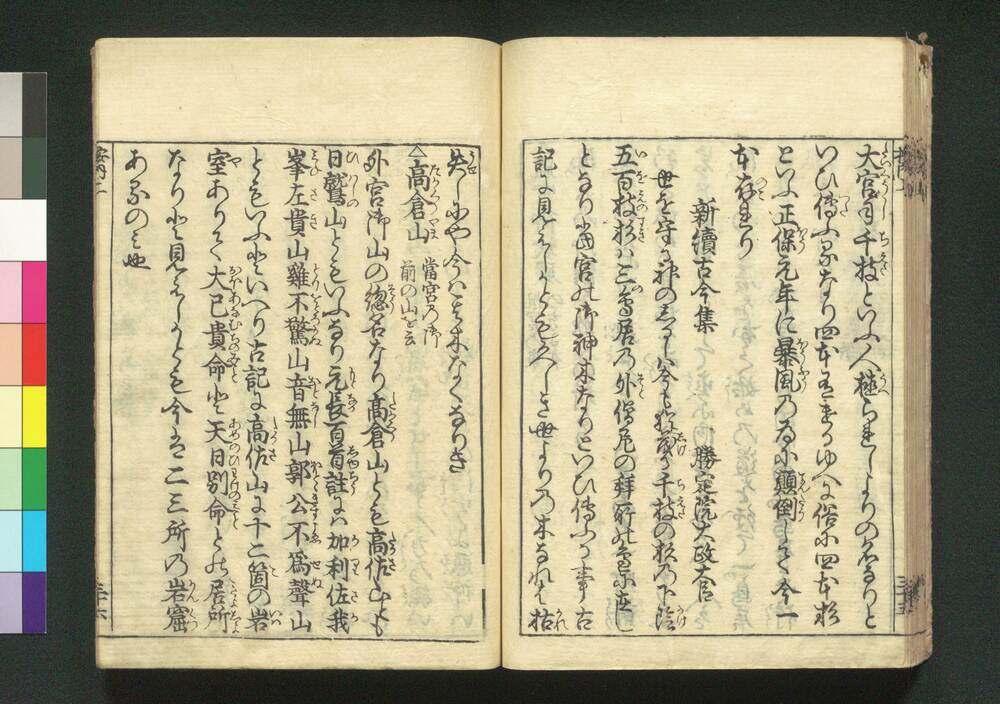 大宮司千枝といふ人植られしよりの名なりと
いひ傳ふるなり四本有けるゆへに俗に四本杉
といふ正保元年に暴風の為に顛倒して今一
本存れり
新續古今集　勝定院太政大臣
世を守る神のしるしは今も千枝の杉の下陰
五百枝杉ハ三鳥居の外僧尼の拜所の
となり當宮の御神木なりといひ傳ふる事古
記に見えたれとも久しき世よりの木なれは枯
失しにや今ハ其木なくなりき
△高倉山 當宮の御前の山を云
外宮御山の惣名なり高倉山とも高佐山とも
日鷲山ともいふなり元長百首註にハ加利佐我
峯左貴山雞不驚山音無山郭公不為聲山
ともいふといへり古記に高佐山に十二箇の岩
室ありて大已貴命と天日別命との居所
なりと見えたれとも今は二三所の岩窟
あるのミ也
三十五
三十六